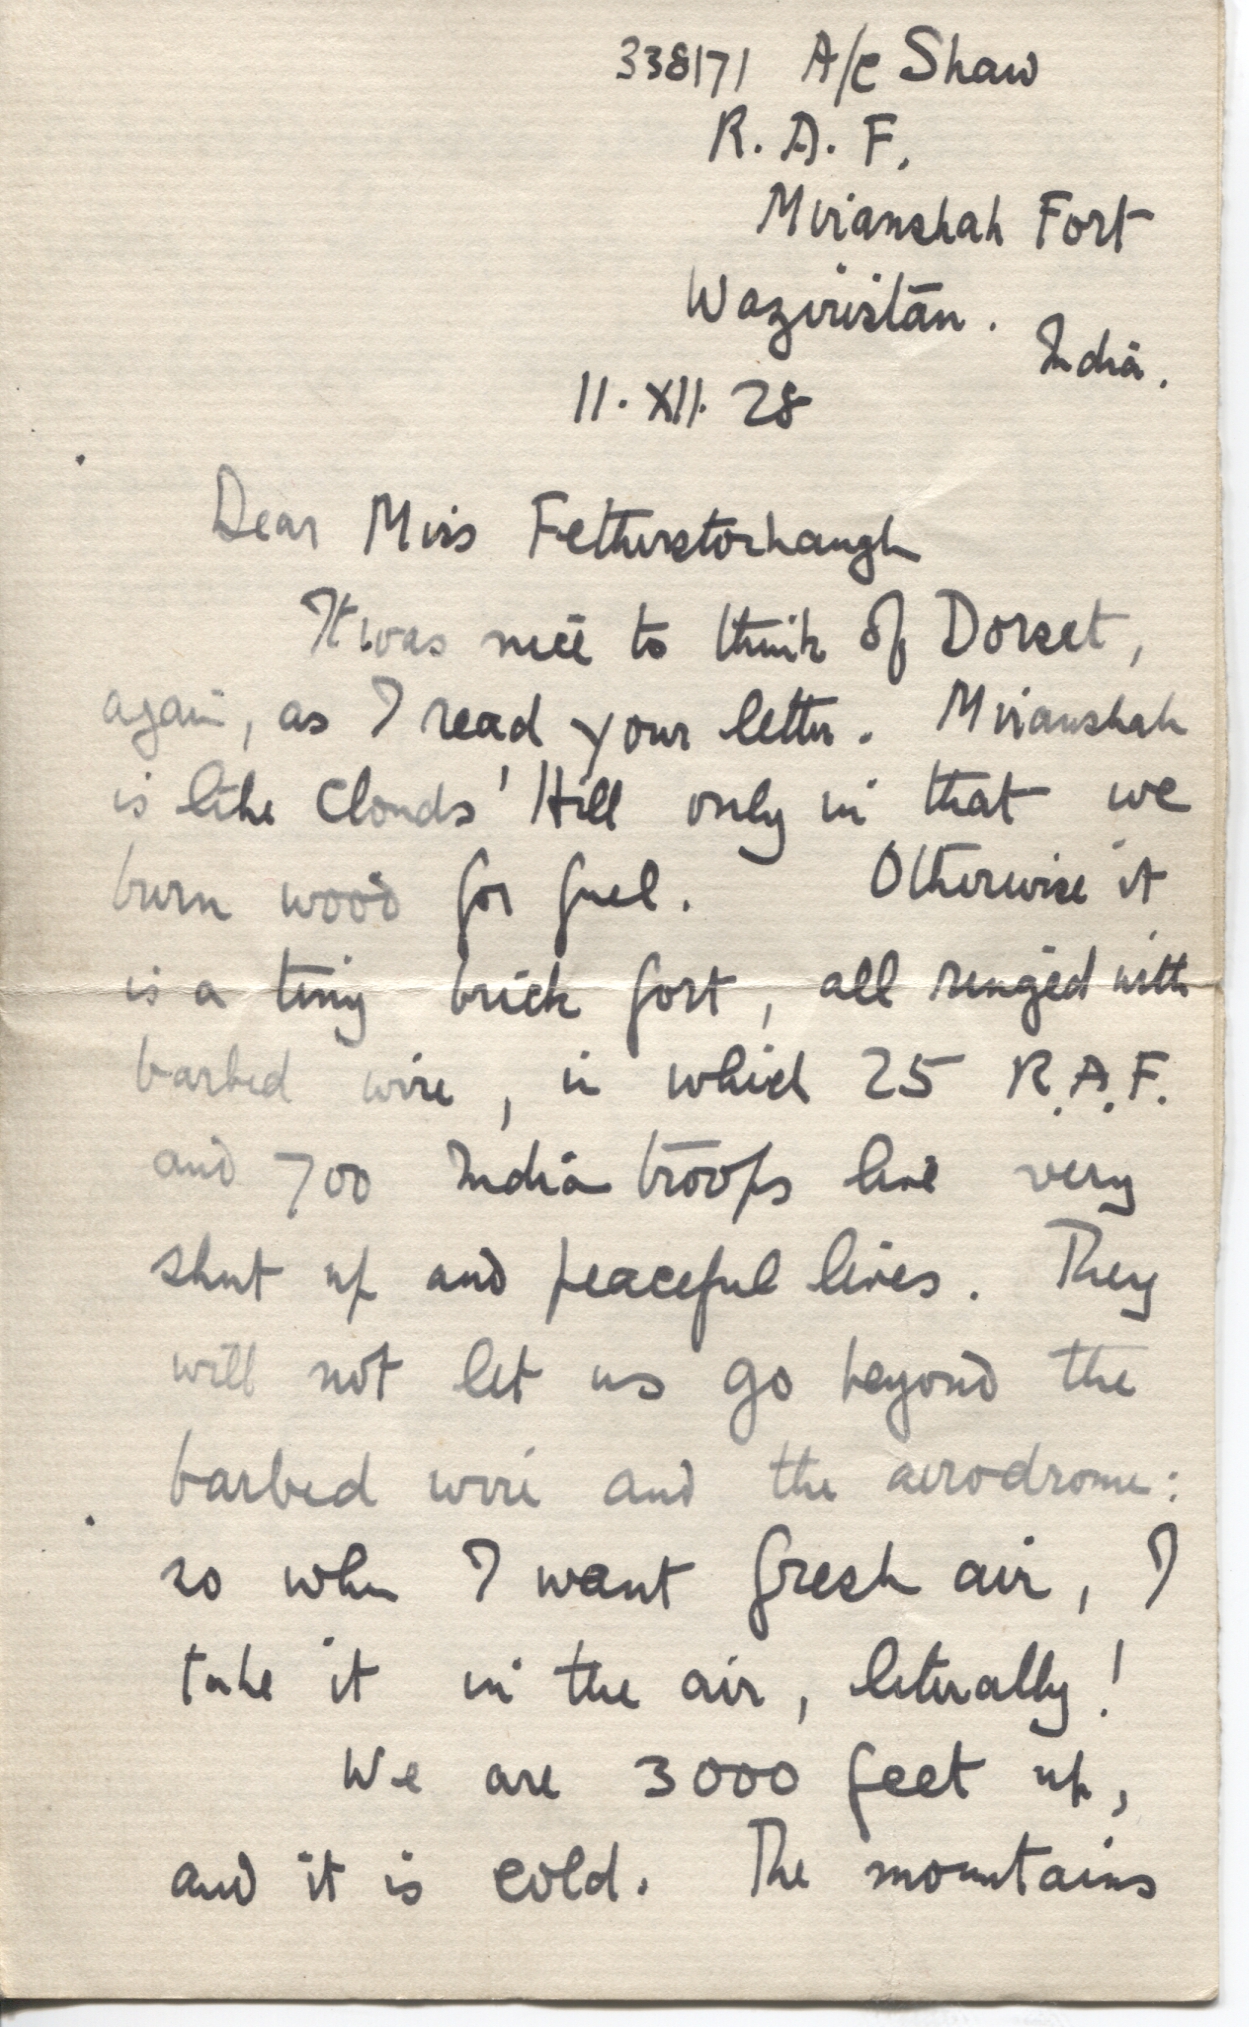 338171 A/c Shaw
R. A. F.
Miranshah Fort
Waziristān.
India.
11. XII. 28
Dear Miss Fetherstonhaugh
It was nice to think of Dorset,
again, as I read your letter. Miranshah
is like Clouds' Hill only in that we
burn wood for fuel. Otherwise it
is a tiny brick fort, all ringed with
barbed wire, in which 25 R.A.F.
and 700 India troops live very
shut up and peaceful lives. They
will not let us go beyond the
barbed wire and the aerodrome:
so when I want fresh air, I
take it in the air, literally!
We are 3000 feet up,
and it is cold. The mountains